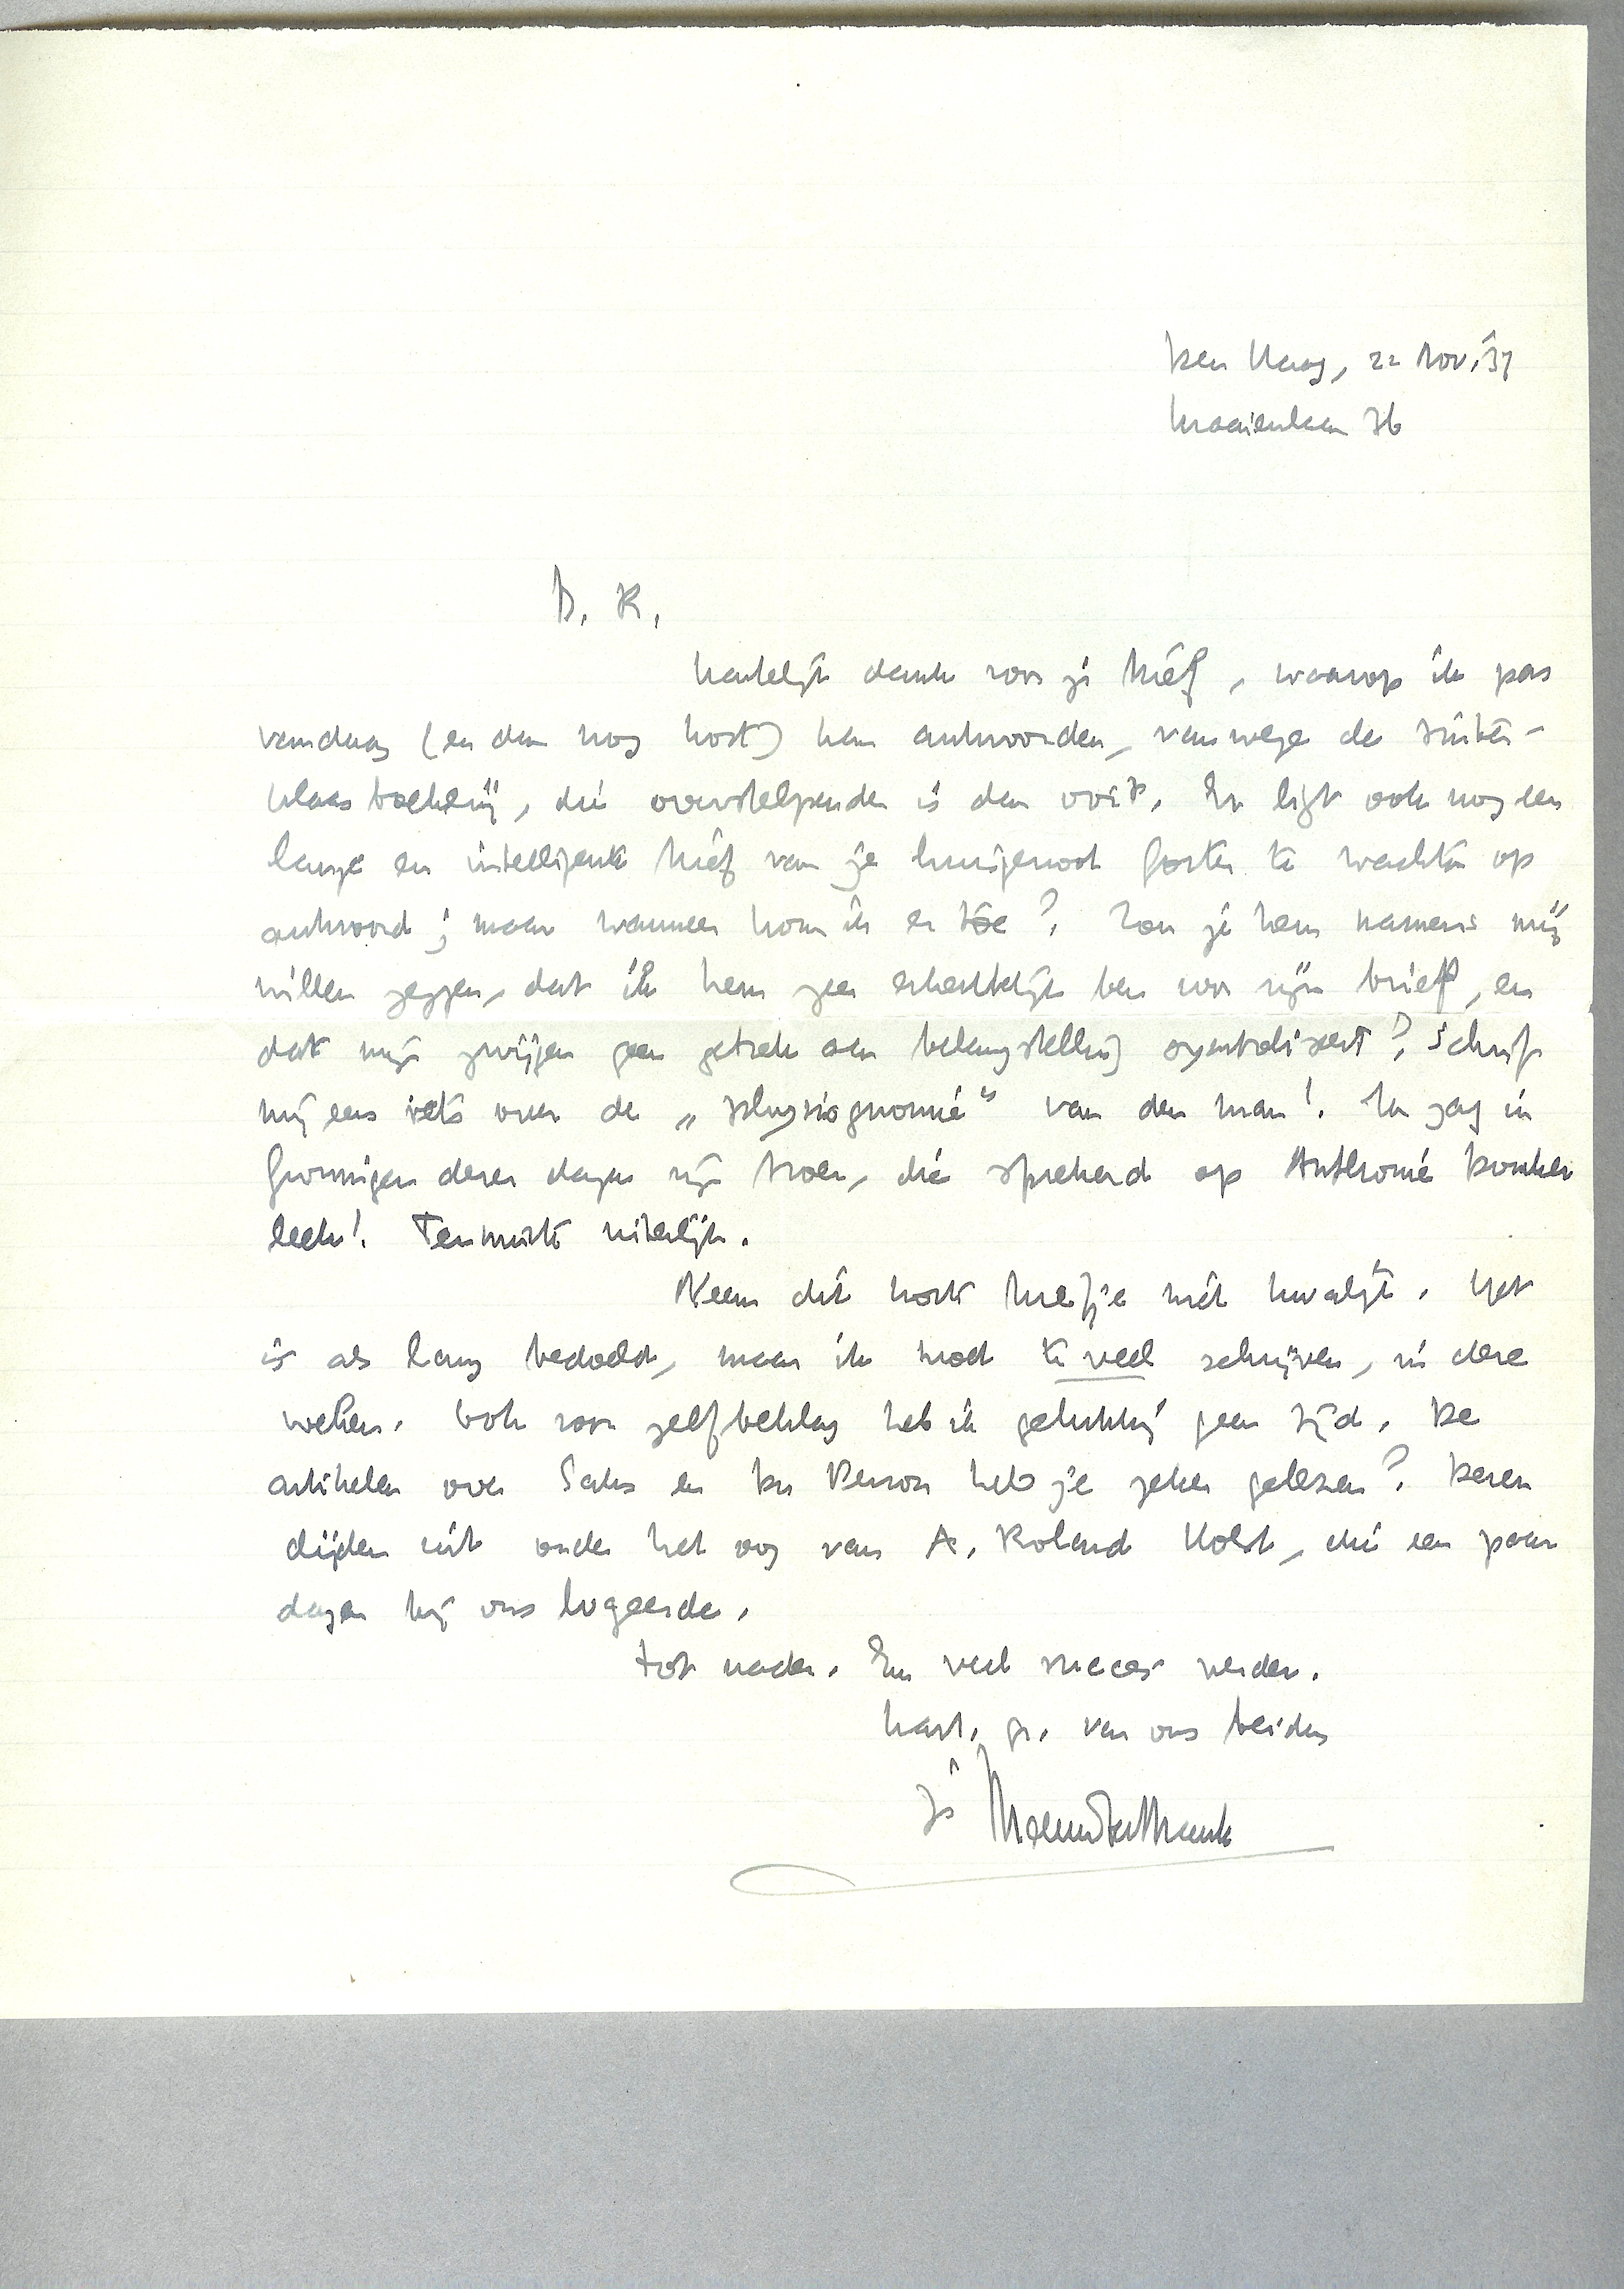 Den Haag, 22 Nov. '37
Kraaienlaan 36
B. K.,
hartelijk dank voor je brief, waarop ik pas
vandaag (en dan nog kort) kan antwoorden, vanwege de Sinter-
klaasboekerij, die overstelpender is dan ooit. Er ligt ook nog een
lange en intelligente brief van je huisgenoot Gorter te wachten op
antwoord; maar wanneer kom ik er toe? Zou je hem namens mij
willen zeggen, dat ik hem zeer erkentelijk ben voor zijn brief, en
dat mijn zwijgen geen gebrek aan belangstelling symboliseert? Schrijf
mij eens iets over de „physiognomie" van den man! Ik zag in
Groningen dezer dagen zijn broer, die sprekend op Anthonie Donker
leek! Tenminste uiterlijk.
Neem dit korte briefje niet kwalijk. Het
is als lang bedoeld, maar ik moet te veel schrijven, in deze
weken. Ook voor zelfbeklag heb ik gelukkig geen tijd. De
artikelen over Saks en Du Perron heb je zeker gelezen? Dezen
dijden uit onder het oog van A. Roland Holst, die een paar
dagen bij ons logeerde.
Tot nader. En veel succes verder.
hart. gr. van ons beiden
je Menno ter Braak